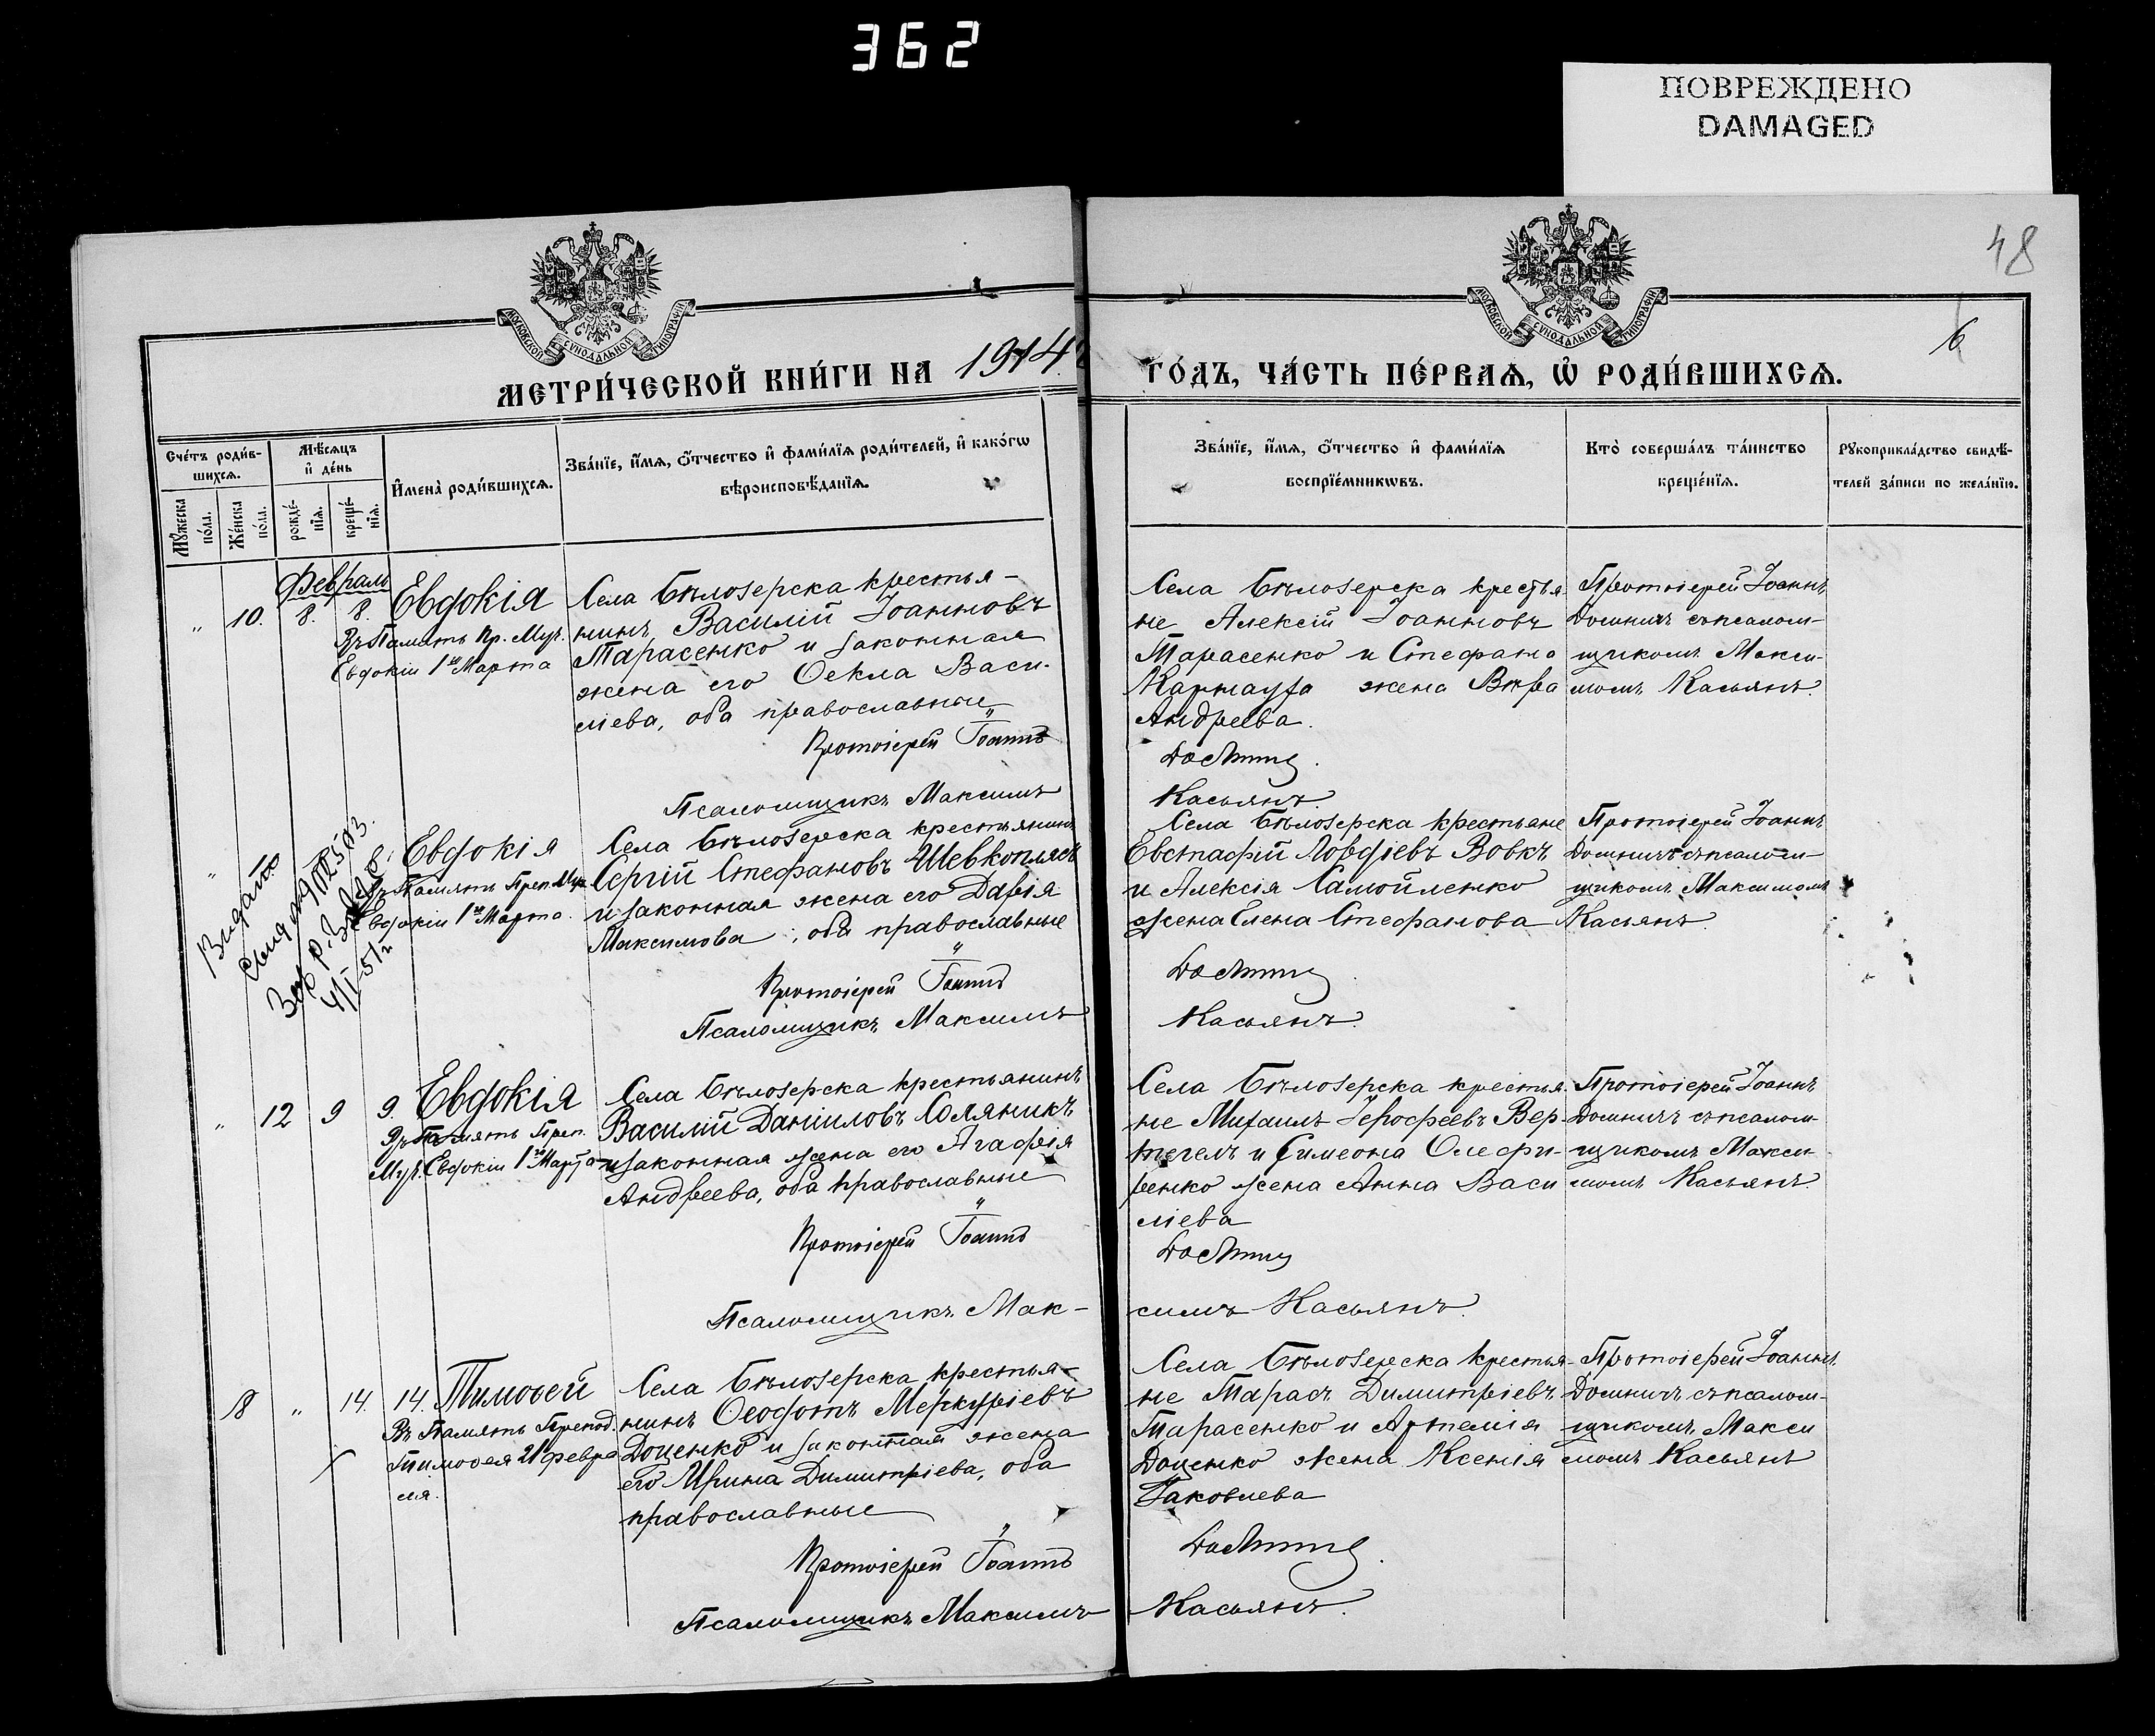 362
ПОВРЕЖДЕНО
DAMAGED
48
6
МОСКОВСКОЙ СѴНОДАЛЬНОЙ ТИПОГРАФІИ
МОСКОВСКОЙ СѴНОДАЛЬНОЙ ТИПОГРАФІИ
МЕТРИ́ЧЕСКОЙ КНИ́ГИ НА 1914
ГО́ДЪ, ЧА́СТЬ ПЕ́РВАѦ, Ѡ҆ РОДИ́ВШИХСѦ.
Сче́тъ роди́в-
шихсѧ.
Мѣ́сѧцъ
и҆ де́нь
Мꙋ́жеска
по́ла.
Же́нска
по́ла.
рожде́-
нїѧ.
креще́-
нїѧ.
И҆мена̀ роди́вшихсѧ.
Зва́нїе, и҆́мѧ, ѻ҆́тчество и҆ фами́лїѧ роди́телей, и҆ како́гѡ
вѣроисповѣ́данїѧ.
Зва́нїе, и҆́мѧ, ѻ҆́тчество и҆ фами́лїѧ
воспрїе́мникѡвъ.
Кто̀ соверша́лъ та́инство
креще́нїѧ.
Рꙋкоприкла́дство свидѣ́-
телей за́писи по жела́нїю.
Февраль
„ 10. 8. 8. Евдокія
Въ Память Пр. Муч.
Евдокіи 1го Марта
Села Бѣлозерска крестья-
нинъ Василій Іоанновъ
Тарасенко и законная
жена его Ѳекла Васи-
ліева, оба православные
Протоіерей Іоаннъ
Псаломщикъ Максимъ
Села Бѣлозерска крестья
не Алексій Іоанновъ
Тарасенко и Стефана
Карнауха жена Вѣра
Андреева.
Касьянъ.
Протоіерей Іоаннъ
Домничъ съ псалом-
щикомъ Макси-
момъ Касьянъ.
Видано
4/I-51г
„ Евдокія
Въ Память Преп. Муч.
Евдокіи 1го Марта.
Села Бѣлозерска крестьянинъ
Сергій Стефановъ Шевкоплясъ
и законная жена его Дарія
Максимова, оба православные
Протоіерей Іоаннъ
Псаломщикъ Максимъ
Села Бѣлозерска крестьяне
Евстафій Іовдіевъ Вовкъ
и Алексія Самойленко
жена Елена Стефанова
Касьянъ.
Протоіерей Іоаннъ
Домничъ съ псалом-
щикомъ Максимомъ
Касьянъ.
„ 12 9 9. Евдокія
Въ Память Преп.
Муч. Евдокіи 1го Марта
Села Бѣлозерска крестьянинъ
Василій Даніиловъ Соляникъ
и законная жена его Агафія
Андреева, оба православные
Протоіерей Іоаннъ
Псаломщикъ Мак-
Села Бѣлозерска крестья
не Михаилъ Іерофеевъ Вер-
тегелъ и Симеона Олефи-
ренко жена Анна Васи
ліева
симъ Касьянъ.
Протоіерей Іоаннъ
Домничъ съ псалом-
щикомъ Макси-
момъ Касьянъ.
8 „ 14. 14. Тимоѳей
Въ Память Препод.
Тимоѳея 21 февра
ля.
Села Бѣлозерска крестья-
нинъ Ѳеодотъ Меркуріевъ
Доценко и законная жена
его Ирина Димитріева, оба
православные
Протоіерей Іоаннъ
Псаломщикъ Максимъ
Села Бѣлозерска крестья-
не Тарасъ Димитріевъ
Тарасенко и Артемія
Доценко жена Ксенія
Іаковлева
Касьянъ.
Протоіерей Іоаннъ
Домничъ съ псалом-
щикомъ Макси
момъ Касьянъ